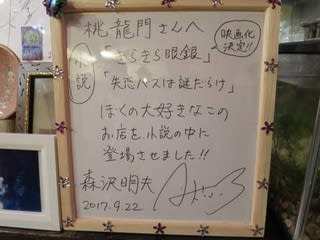 桃龍門さんへ
小説
「きらきら眼鏡」
映画化決定!!
「失恋バスは謎だらけ」
ぼくの大好きなこの
お店を、小説の中に
登場させました!!
森沢明夫
2017.9.22